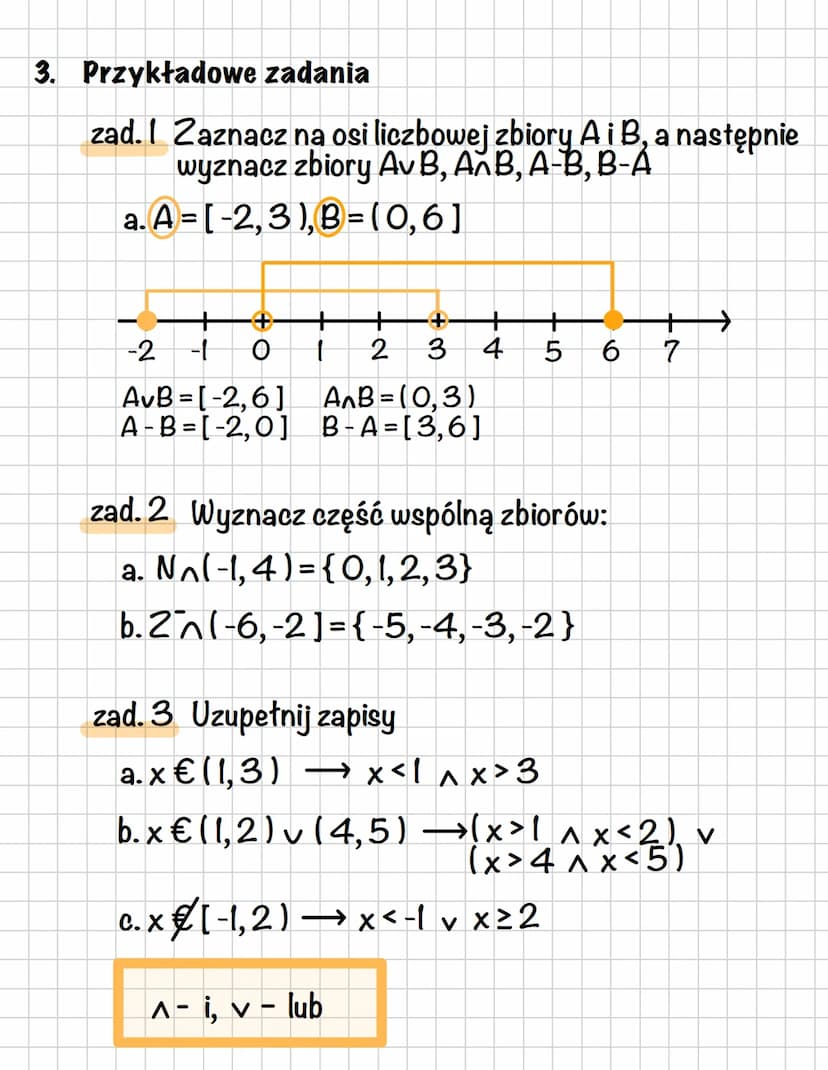 3. Przykładowe zadania
zad. 1 Zaznacz na osi liczbowej zbiory A i B, a następnie
wyznacz zbiory A∨B, A∧B, A-B, B-A
a. A=[-2,3), B=(0,6]
-2 -1 0 1 2 3 4 5 6 7
A∨B=[-2,6] A∧B=(0,3)
A-B=[-2,0] B-A=[3,6]
zad. 2 Wyznacz część wspólną zbiorów:
a. N∧(-1,4)={0,1,2,3}
b. Z⁻∧(-6,-2]={-5,-4,-3,-2}
zad. 3 Uzupełnij zapisy
a. x€(1,3) → x<1 ∧ x>3
b. x€(1,2)∨(4,5) →(x>1 ∧ x<2) ∨
(x>4 ∧ x<5)
c. x∉[-1,2) → x<-1 ∨ x≥2
∧- i, ∨ - lub